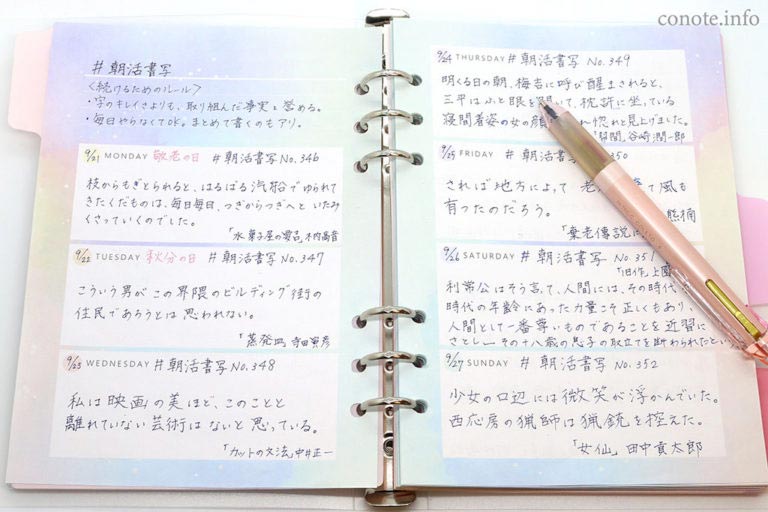 conote.info
# 朝活書写
<続けるためのルール>
・字のキレイさよりも、取り組んだ事実を誉める。
・毎日やらなくてOK。まとめて書くのもアリ。
9/21 MONDAY 敬老の日 # 朝活書写 No.346
枝からもぎとられると、はるばる汽船でゆられて
きたくだものは、毎日毎日、つぎからつぎへといたみ
くさっていくのでした。
「水菓子屋の要吉」木内高音
9/22 TUESDAY 秋分の日 # 朝活書写 No.347
こういう男がこの界隈のビルディング街の
住民であろうとは思われない。
「蒸発皿」寺田寅彦
9/23 WEDNESDAY # 朝活書写 No.348
私は映画の美ほど、このことと
離れていない芸術はないと思っている。
「カットの文法」中井正一
9/24 THURSDAY # 朝活書写 No.349
明くる日の朝、梅吉に呼び醒まされると、
三平はふと眼を開いて、枕許に坐っている
寝間着姿の女の顔 れ惚れと見上げました。
「幇間」谷崎潤一郎
9/25 FRIDAY # 朝活書写 50
されば地方によって 老 て風も
育ったのだろう。
「棄老傳説に 熊楠
9/26 SATURDAY # 朝活書写 No.351
「旧作」上
利常公はそう言て、人間には、その時代
時代の年齢にあった力量こそ正しくもあり、
人間として一番尊いものであることを近習に
さとし その十八歳の息子の取立てを断わられたとい
9/27 SUNDAY # 朝活書写 No.352
少女の口辺には微笑が浮かんでいた。
西応房の猟師は猟銃を控えた。
「女仙」田中貢太郎